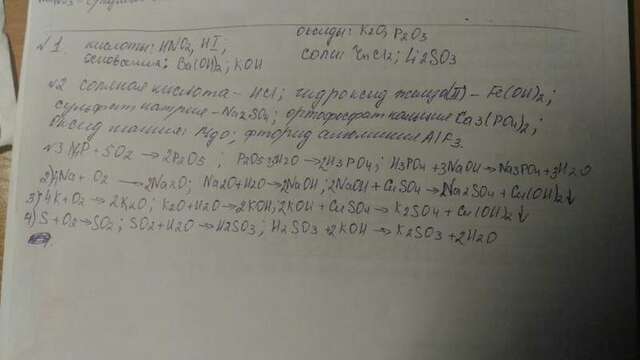 оксиды: K2O, P2O3
№1. кислоты: HNO2, HI;
соли: ZnCl2; Li2SO3
основания: Ba(OH)2; KOH
№2 соляная кислота - HCl; гидроксид железа(II) - Fe(OH)2;
сульфат натрия - Na2SO4; ортофосфат кальция Ca3(PO4)2;
оксид магния: MgO; фторид алюминия AlF3.
№3 1) 4P + 5O2 → 2P2O5; P2O5+3H2O → 2H3PO4; H3PO4 + 3NaOH → Na3PO4 + 3H2O
2) 4Na + O2 → 2Na2O; Na2O+H2O → 2NaOH; 2NaOH + CuSO4 → Na2SO4 + Cu(OH)2↓
3) 4K + O2 → 2K2O; K2O + H2O → 2KOH; 2KOH + CuSO4 → K2SO4 + Cu(OH)2↓
4) S + O2 → SO2; SO2 + H2O → H2SO3; H2SO3 + 2KOH → K2SO3 + 2H2O